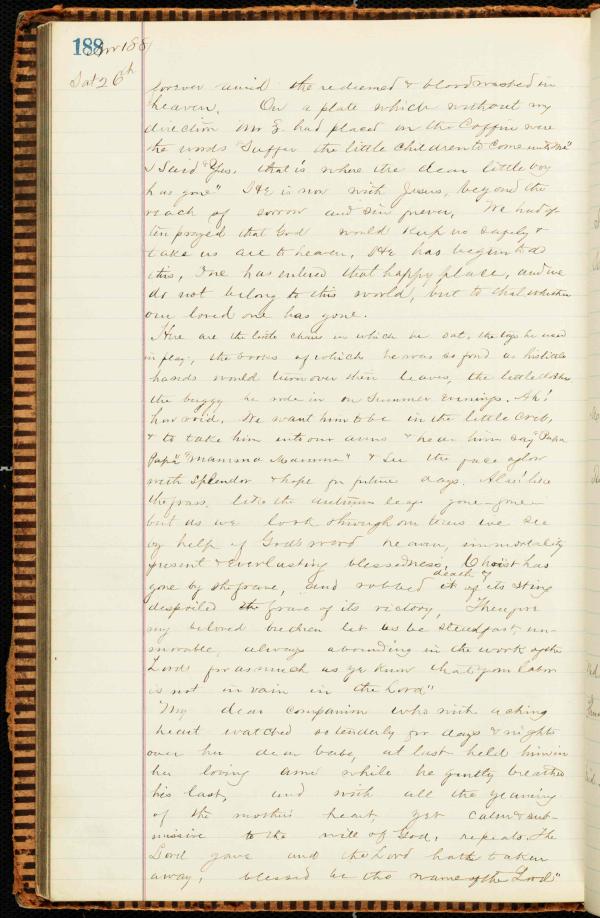 188 Nov 1881
Sat 26th
forever amid the redeemed & bloodwashed in
heaven. On a plate which without my
direction Mr had placed on the Coffin were
the words "Suffer the little children to come unto me"
I said "Yes, that is where the dear little boy
has gone" He is now with Jesus, beyond the
reach of sorrow and sin forever. We had of
ten prayed that God would keep us safely &
take us all to heaven, He has begun to do
this, One has entered that happy place, and we
do not belong to this world, but to that whither
our loved one has gone.
Here are the little chairs in which he sat, the toys he used
in play, the books of which he was so fond as his little
hands would turn over their leaves, the little clothes
the buggy he rode in on Summer evenings. Ah!
how void, We want him to be in the little Crib,
& to take him into our arms & hear him say "Papa
Papa" "Mamma Mamma" & see the face aglow
with splendor & hope for future days. Alas! like
the grass, like the autumn leaf gone - gone -
but as we look through our tears we see
by help of God's word heaven, immortality
present & everlasting blessedness. Christ has
gone by the grave, and robbed death of its sting
despoiled the grave of its victory, Therefore
my beloved brethren let us be steadfast, un-
movable, always abounding in the work of the
Lord for as much as ye know that your labor
is not in vain in the Lord"
My dear companion who with aching
heart watched so tenderly for days & nights
over her dear babe, at last held him in
her loving arms while he gently breathed
his last, and with all the yearning
of the mother's heart, yet calm & sub-
missive to the will of God, repeats. The
Lord gave and the Lord hath taken
away, blessed be the name of the Lord"